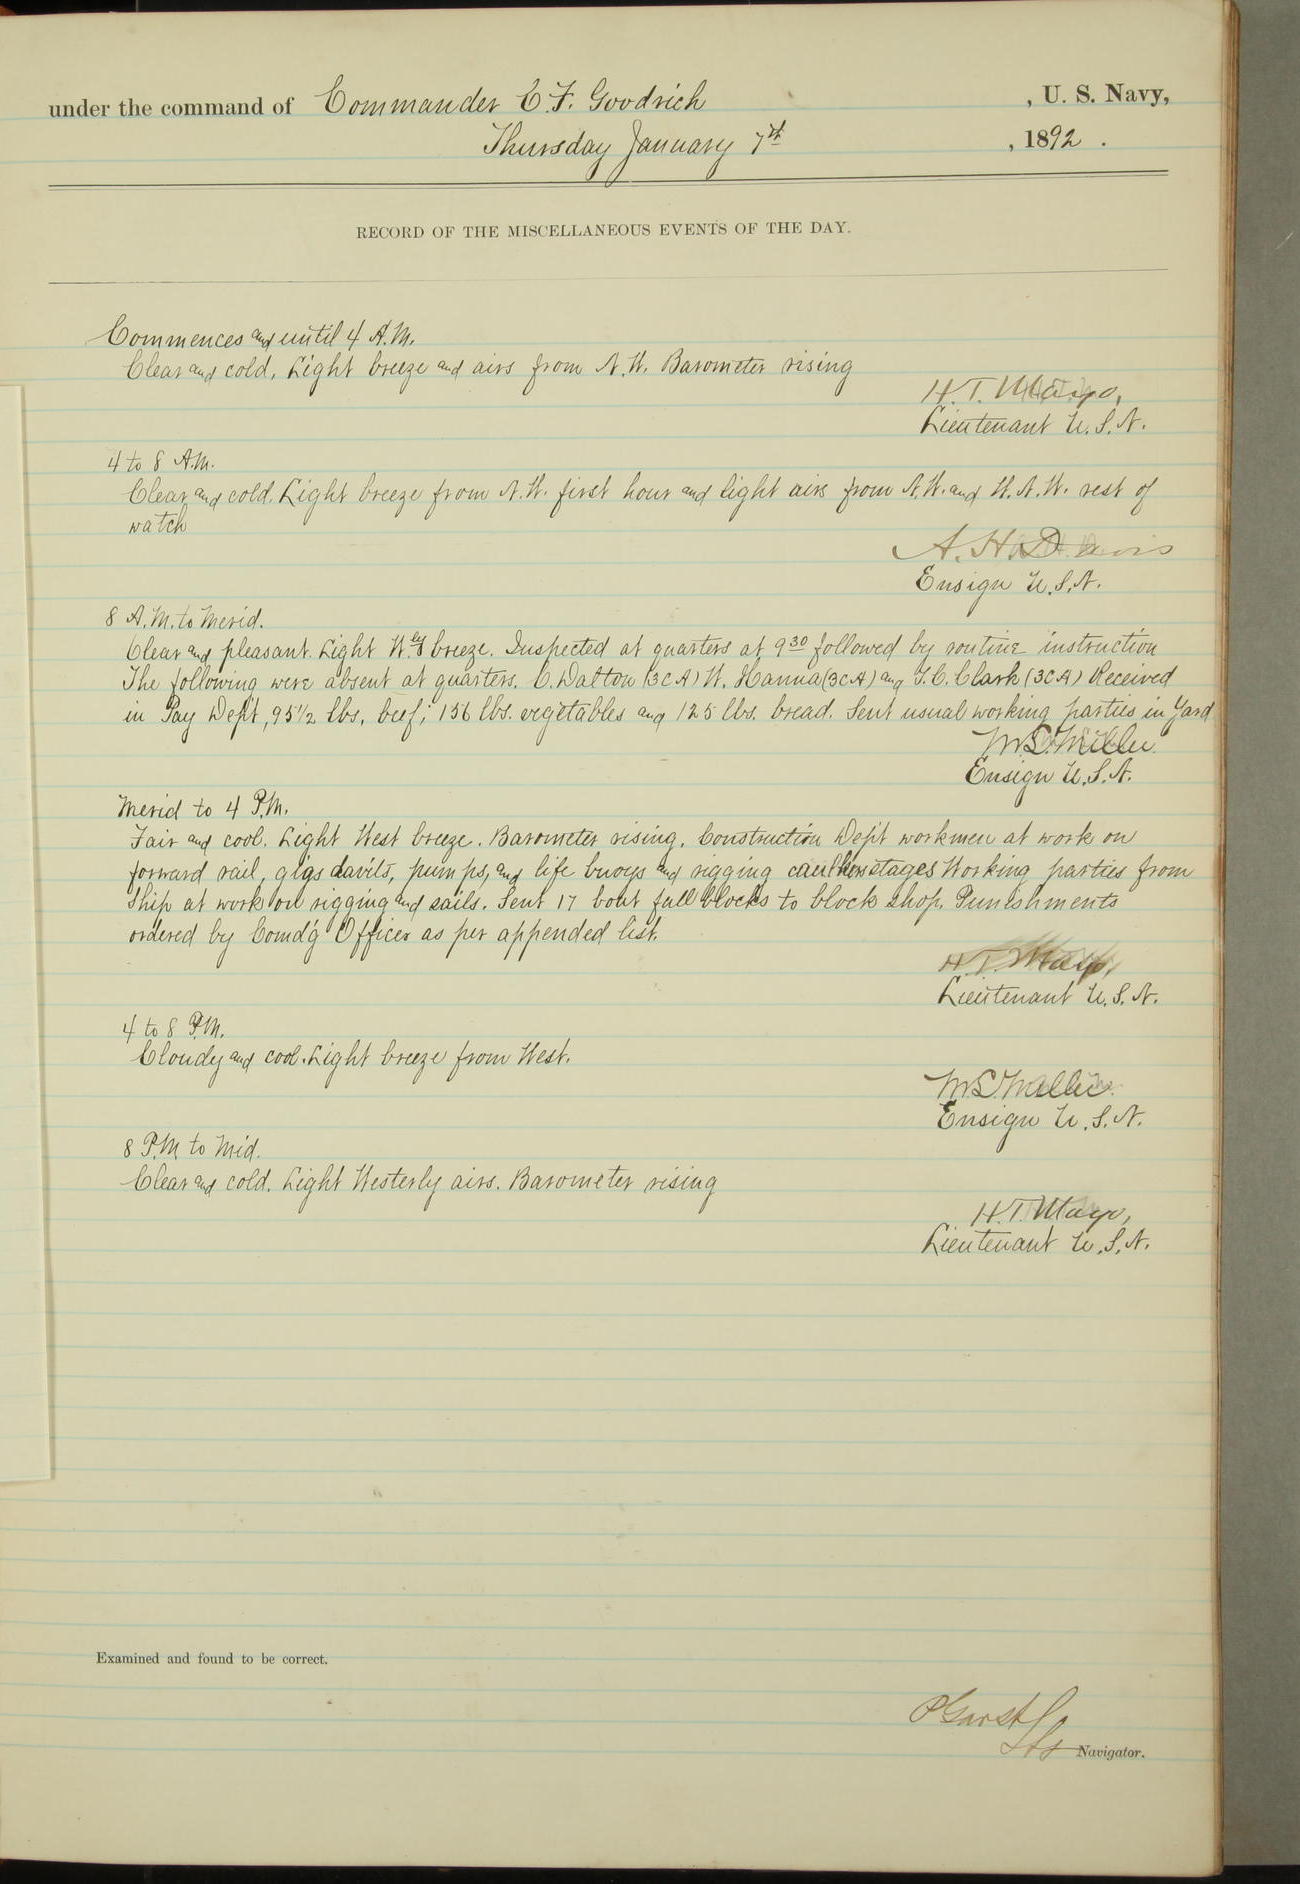 under the command of Commander C. F. Goodrich , U. S. Navy,
Thursday January 7th , 1892 .
RECORD OF THE MISCELLANEOUS EVENTS OF THE DAY.
Commences and until 4 A.M.
Clear and cold, Light breeze and airs from N.W. Barometer rising
H. T. Mayo,
Lieutenant U.S.N.
4 to 8 A.M.
Clear and cold. Light breeze from N.W. first hour and light airs from N.W. and W.N.W. rest of
watch
A. H. Davis
Ensign U.S.N.
8 A.M. to Merid.
Clear and pleasant. Light W'ly breeze. Inspected at quarters at 9 30 followed by routine instruction
The following were absent at quarters. C. Dalton (3CA) W. Hanna (3CA) and Clark (3CA) Received
in Pay Dep't, 95 1/2 lbs. beef; 156 lbs. vegetables and 125 lbs. bread. Sent usual working parties in Yard
Miller
Ensign U.S.N.
Merid to 4 P.M.
Fair and cool. Light West breeze. Barometer rising. Construction Dep't workmen at work on
forward rail, gigs davits, pumps, and life buoys and rigging caulkers stages Working parties from
Ship at work on rigging and sails. Sent 17 boat fall blocks to block shop. Punishments
ordered by Comd'g Officer as per appended list.
H. T. Mayo,
Lieutenant U.S.N.
4 to 8 P.M.
Cloudy and cool. Light breeze from West.
Miller
Ensign U.S.N.
8 P.M. to Mid.
Clear and cold. Light Westerly airs. Barometer rising
H. T. Mayo,
Lieutenant U.S.N.
Examined and found to be correct.
P Garst
Navigator.